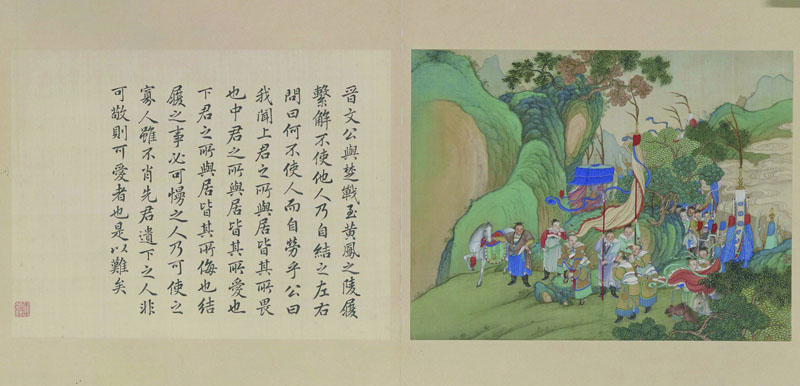 晉文公與楚戰至黃鳳之陵履
繫解不使他人乃自結之左右
問曰何不使人而自勞乎公曰
我聞上君之所與居皆其所畏
也中君之所與居皆其所愛也
下君之所與居皆其所侮也結
履之事必可慢之人乃可使之
寡人雖不肖先君遺下之人非
可敬則可愛者也是以難矣